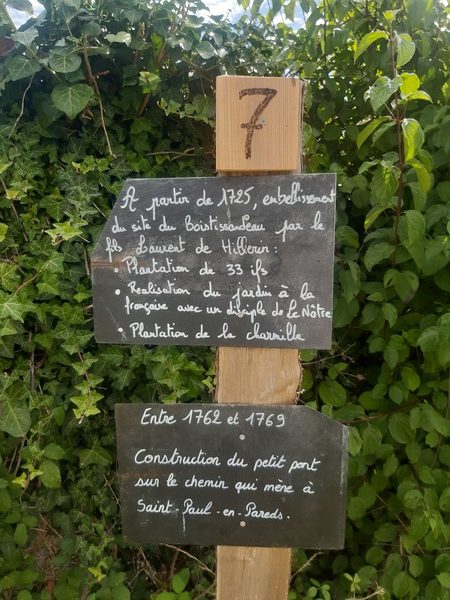 7
A partir de 1725, embellissement
du site du Boistissandeau par le
fils Laurent de Hillerin :
• Plantation de 33 ifs
• Réalisation du jardin à la
française avec un disciple de Le Nôtre
• Plantation de la charmille
Entre 1762 et 1769
Construction du petit pont
sur le chemin qui mène à
Saint-Paul-en-Pareds.